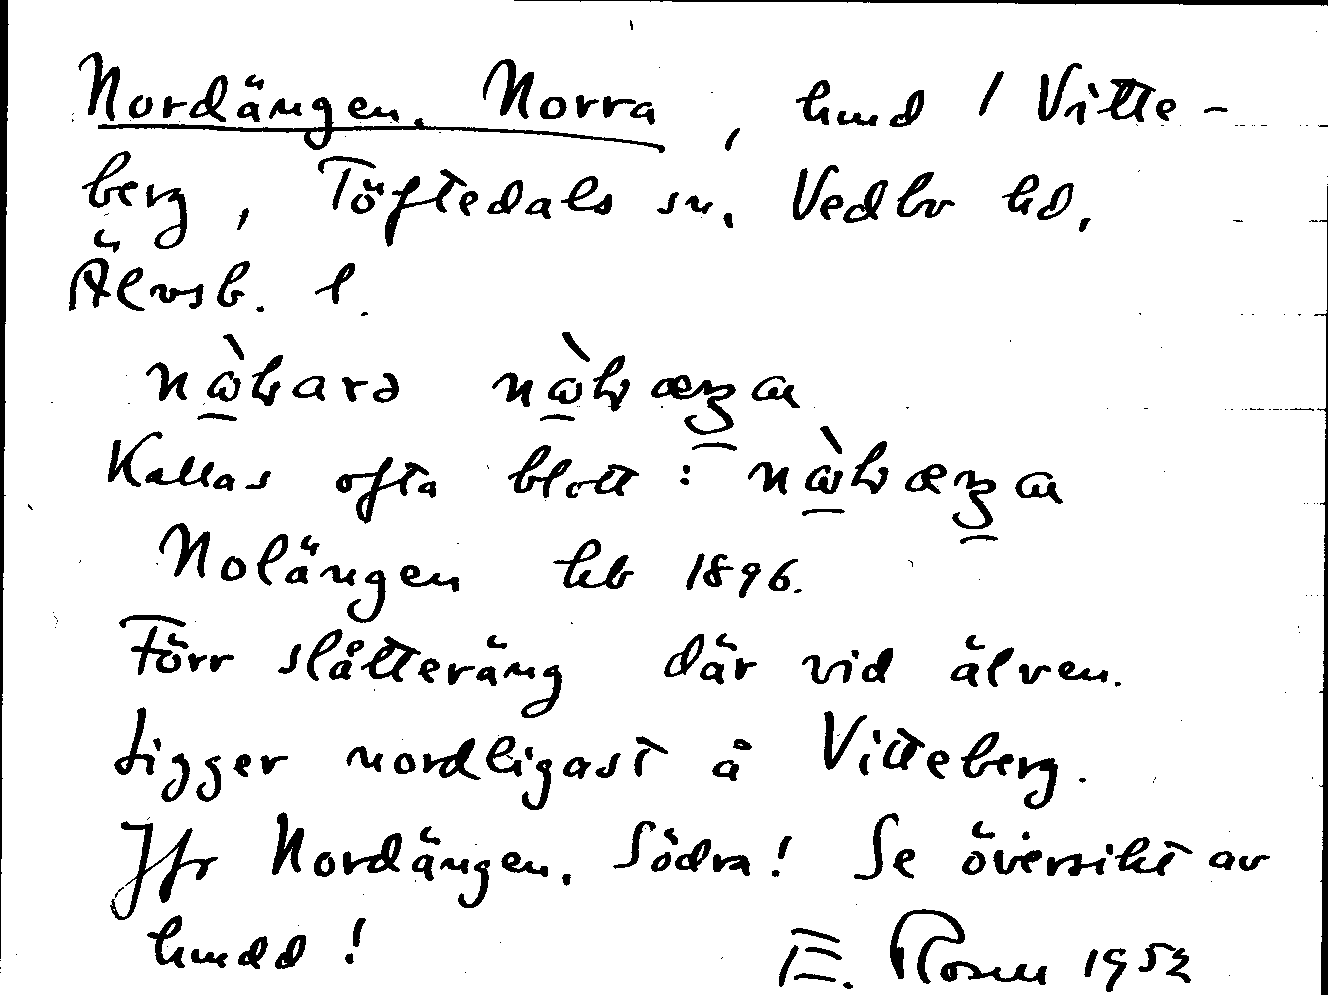 Nordängen. Norra, hmd / Vitte-
berg, Töftedals sn. Vedbo hd.
Älvsb. l.
Kallas ofta blott:
Nolängen hb 1896.
Förr slåtteräng där vid älven.
Ligger nordligast å Vitteberg.
Jfr Nordängen. Södra! Se översikt av
hmdd! E. Rosen 1952